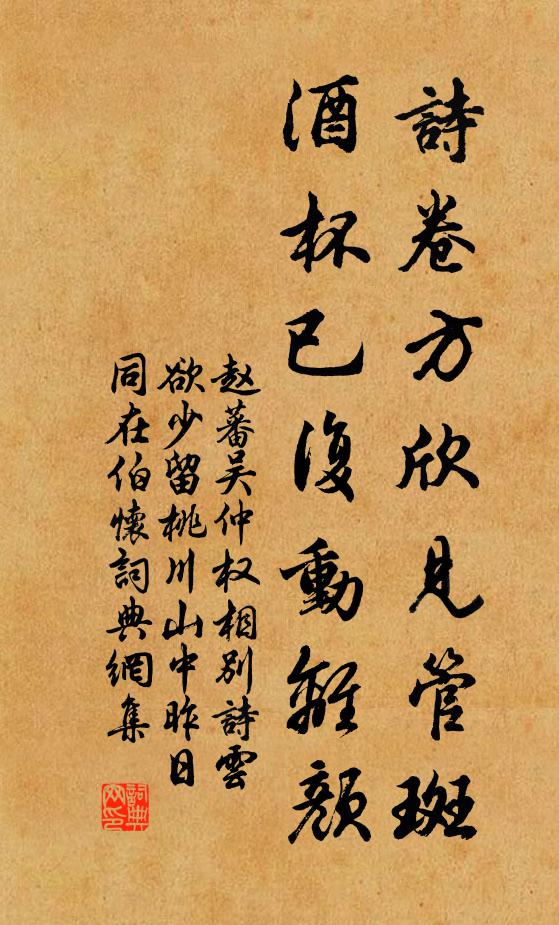 詩卷方欣見管斑
酒杯已復動離顏
赵蕃吴仲权相别詩雲
欲少留桃川山中昨日
同在伯懷詞典網集
詞典
网印